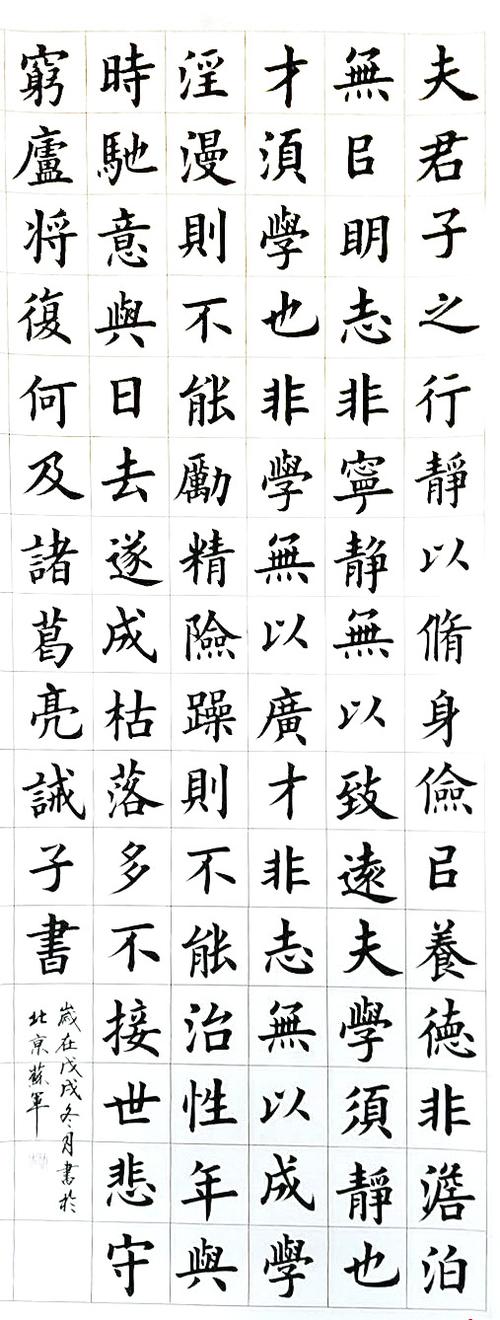 夫君子之行靜以脩身儉㠯養德非澹泊
無㠯明志非寧静無以致遠夫學須靜也
才湏學也非學無以廣才非志無以成學
淫漫則不能勵精險躁則不能治性年與
時馳意與日去遂成枯落多不接世悲守
窮廬将復何及諸葛亮誡子書
歲在戊戌冬月書於
北京蘇軍